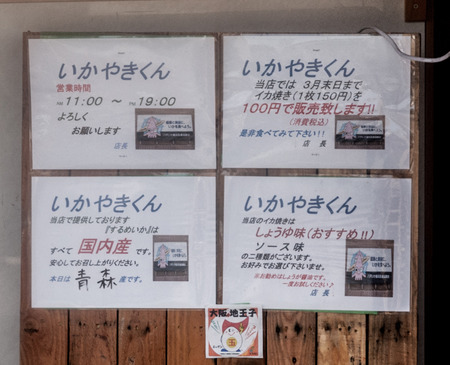 いかやきくん
営業時間
AM 11:00 ～ PM 19:00
よろしく
お願いします
店長
いかやきくん
当店では 3月末日まで
イカ焼き(1枚150円)を
100円で販売致します!!
(消費税込)
是非食べてみて下さい!!
店 長
いかやきくん
当店で提供しております
『するめいか』は
すべて 国内産 です。
安心してお召し上がりください。
本日は 青森 産です。
いかやきくん
当店のイカ焼きは
しょうゆ味(おすすめ!!)
ソース味
の二種類がございます。
お好みでお選び下さいませ。
※お勧めはしょうが醤油です。
一度お試しください♪
店 長
大阪の地玉子